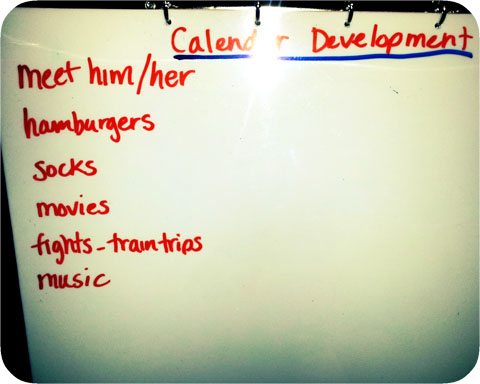 Calender Development
meet him/her
hamburgers
socks
movies
fights-train trips
music